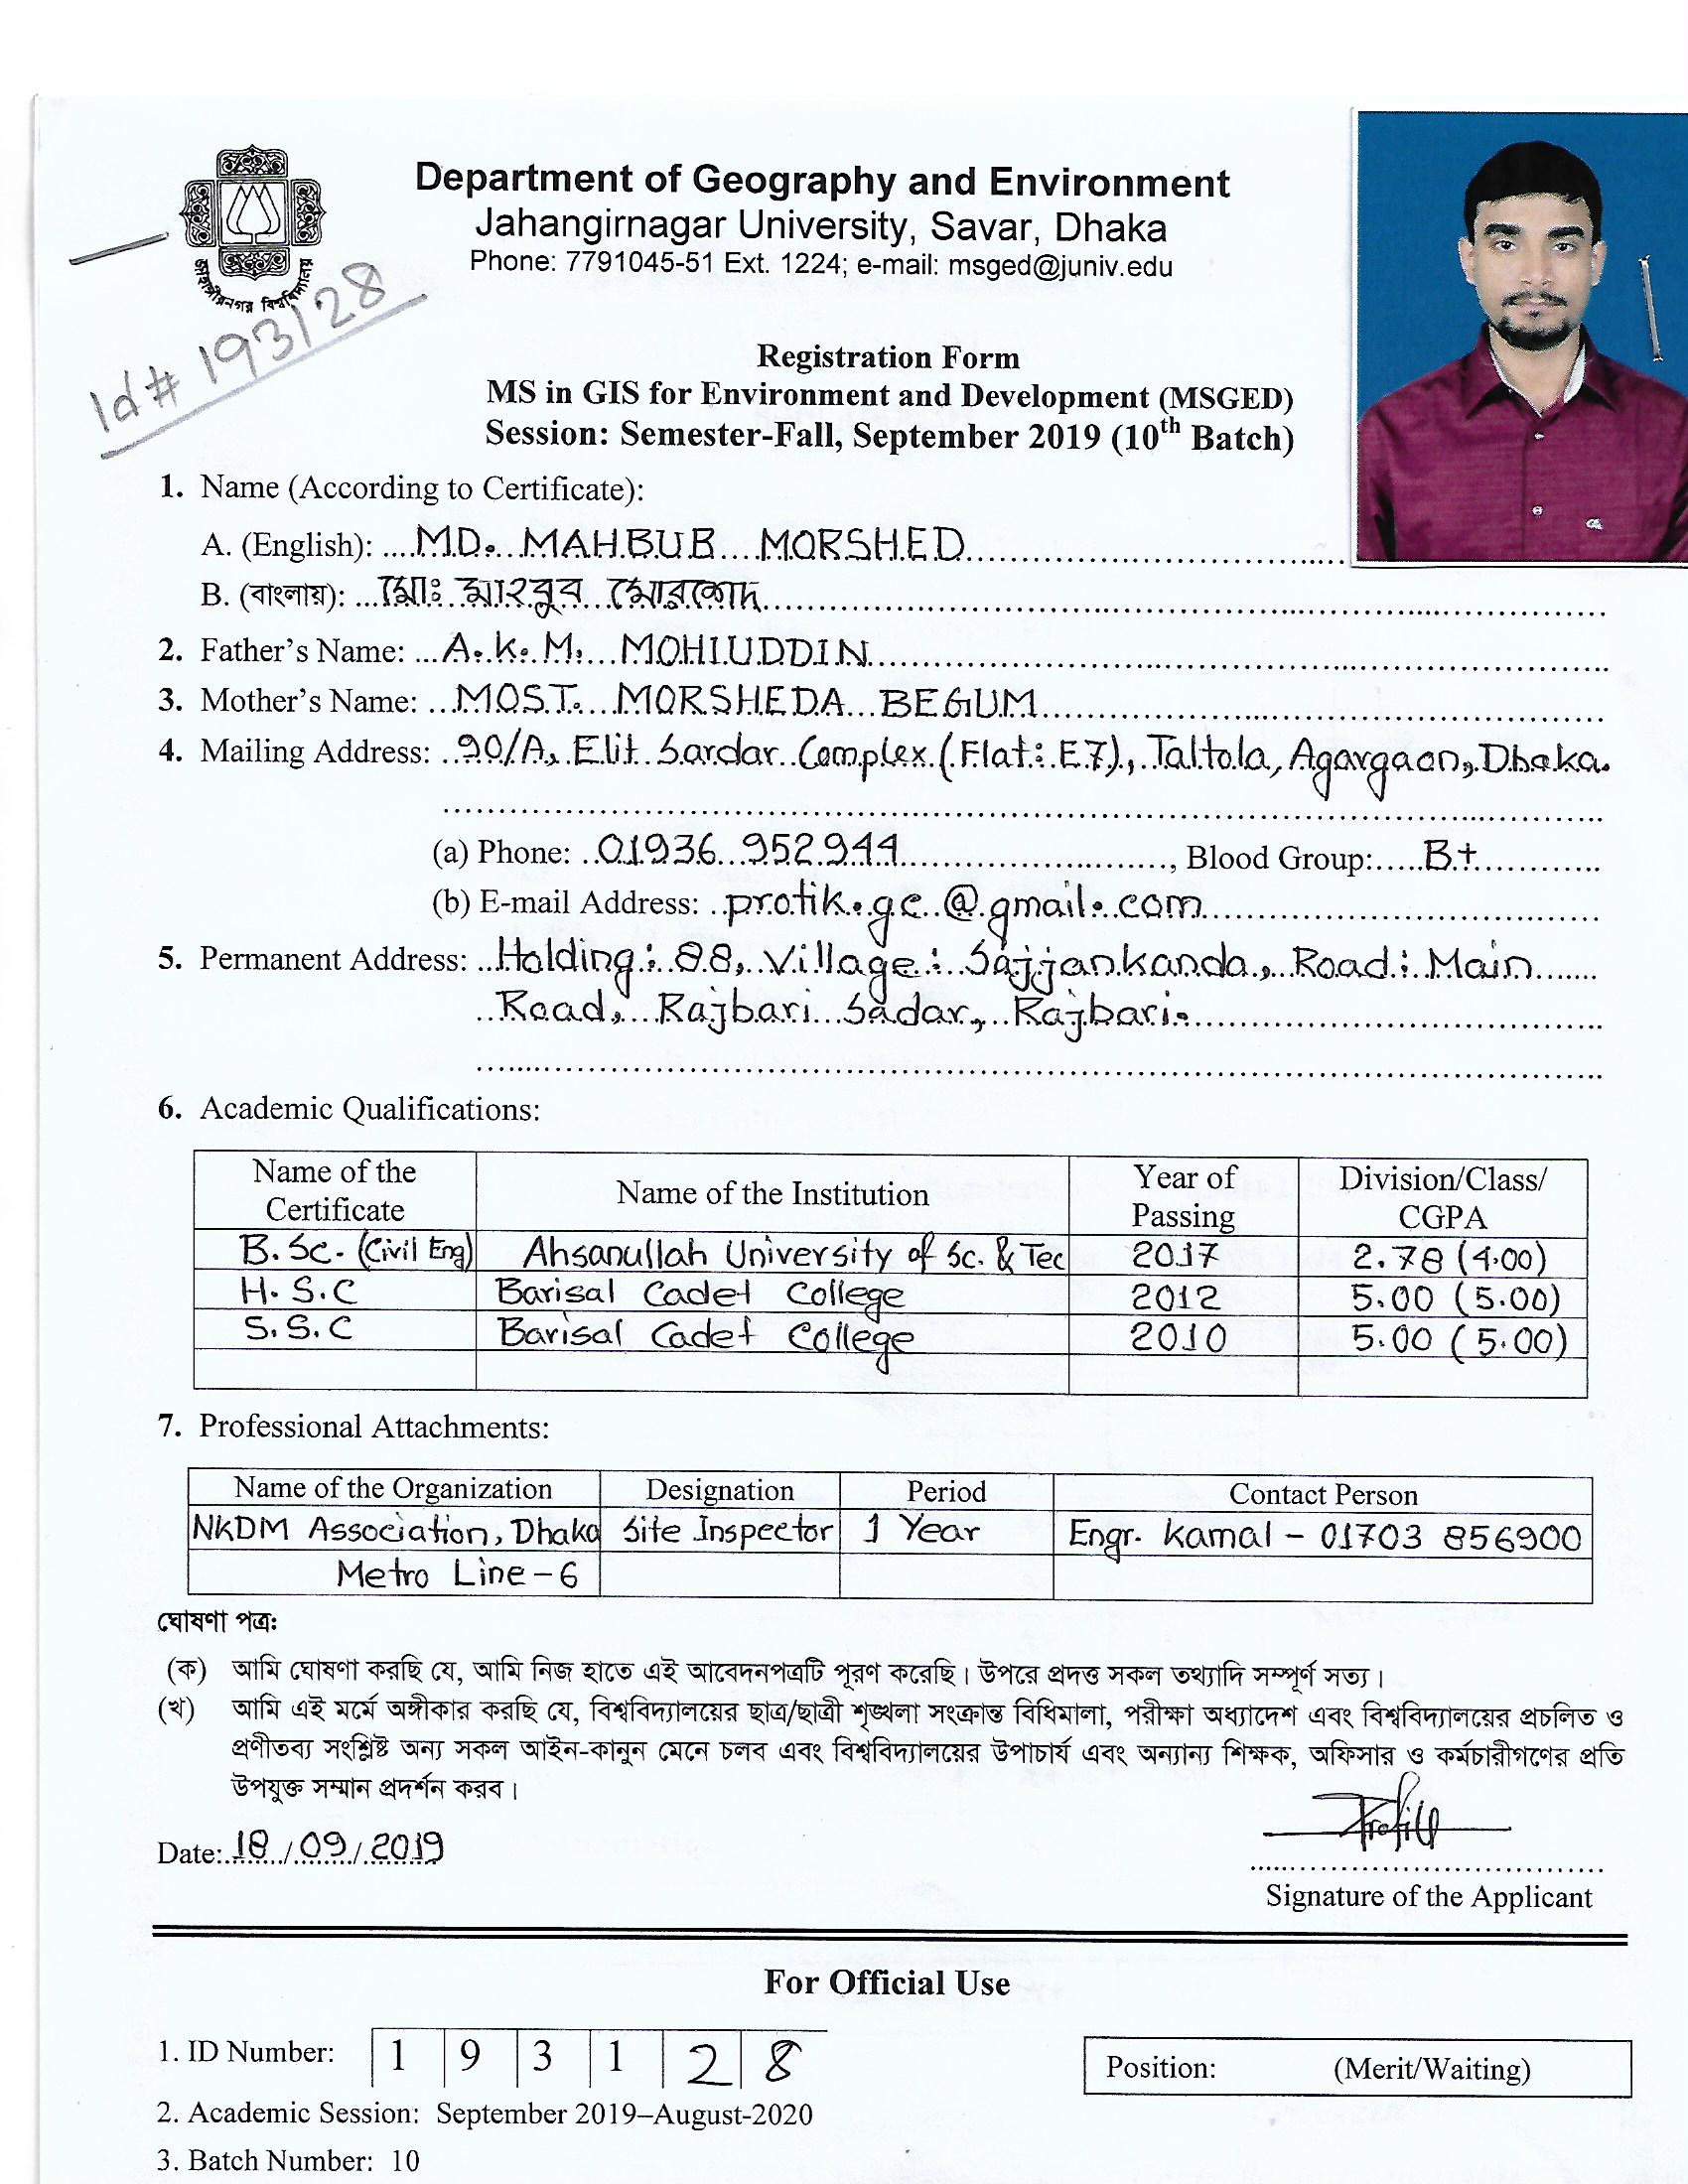 Department of Geography and Environment
Jahangirnagar University, Savar, Dhaka
Phone: 7791045-51 Ext. 1224; e-mail: msged@juniv.edu
জাহাঙ্গীরনগর বিশ্ববিদ্যালয়
Id# 193128
Registration Form
MS in GIS for Environment and Development (MSGED)
Session: Semester-Fall, September 2019 (10th Batch)
1. Name (According to Certificate):
A. (English): MD. MAHBUB MORSHED
B. (বাংলায়): মোঃ মাহবুব মোরশেদ
2. Father's Name: A. K. M. MOHIUDDIN
3. Mother's Name: MOST. MORSHEDA BEGUM
4. Mailing Address: 90/A, Elit Sardar Complex (Flat: E7), Taltola, Agargaon, Dhaka.
(a) Phone: 01936 952944, Blood Group: B+
(b) E-mail Address: protik.gc@gmail.com
5. Permanent Address: Holding: 88, Village: Sajjankanda, Road: Main
Road, Rajbari Sadar, Rajbari.
6. Academic Qualifications:
Name of the Certificate Name of the Institution Year of Passing Division/Class/ CGPA
B.Sc. (Civil Eng) Ahsanullah University of Sc. & Tec 2017 2.78 (4.00)
H.S.C Barisal Cadet College 2012 5.00 (5.00)
S.S.C Barisal Cadet College 2010 5.00 (5.00)
7. Professional Attachments:
Name of the Organization Designation Period Contact Person
NKDM Association, Dhaka Site Inspector 1 Year Engr. Kamal - 01703 856900
Metro Line-6
ঘোষণা পত্র:
(ক) আমি ঘোষণা করছি যে, আমি নিজ হাতে এই আবেদনপত্রটি পূরণ করেছি। উপরে প্রদত্ত সকল তথ্যাদি সম্পূর্ণ সত্য।
(খ) আমি এই মর্মে অঙ্গীকার করছি যে, বিশ্ববিদ্যালয়ের ছাত্র/ছাত্রী শৃঙ্খলা সংক্রান্ত বিধিমালা, পরীক্ষা অধ্যাদেশ এবং বিশ্ববিদ্যালয়ের প্রচলিত ও
প্রণীতব্য সংশ্লিষ্ট অন্য সকল আইন-কানুন মেনে চলব এবং বিশ্ববিদ্যালয়ের উপাচার্য এবং অন্যান্য শিক্ষক, অফিসার ও কর্মচারীগণের প্রতি
উপযুক্ত সম্মান প্রদর্শন করব।
Date: 18/09/2019
Signature of the Applicant
For Official Use
1. ID Number: 1 9 3 1 2 8
Position: (Merit/Waiting)
2. Academic Session: September 2019–August-2020
3. Batch Number: 10